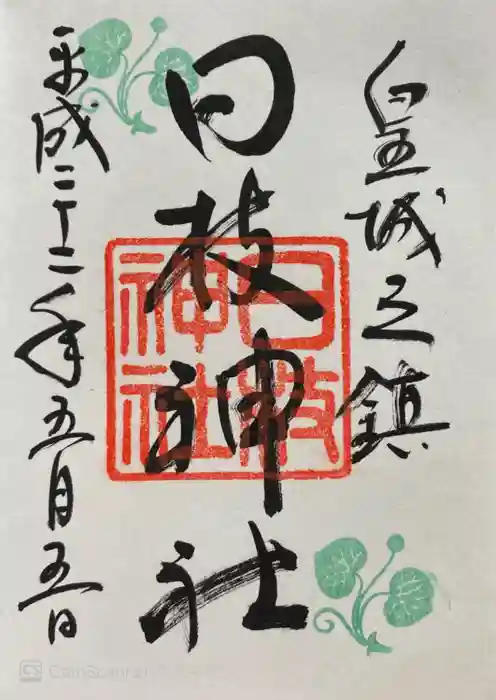 皇城之鎮
日枝神社
日枝
神社
平成二十二年五月五日
CS CamScanner